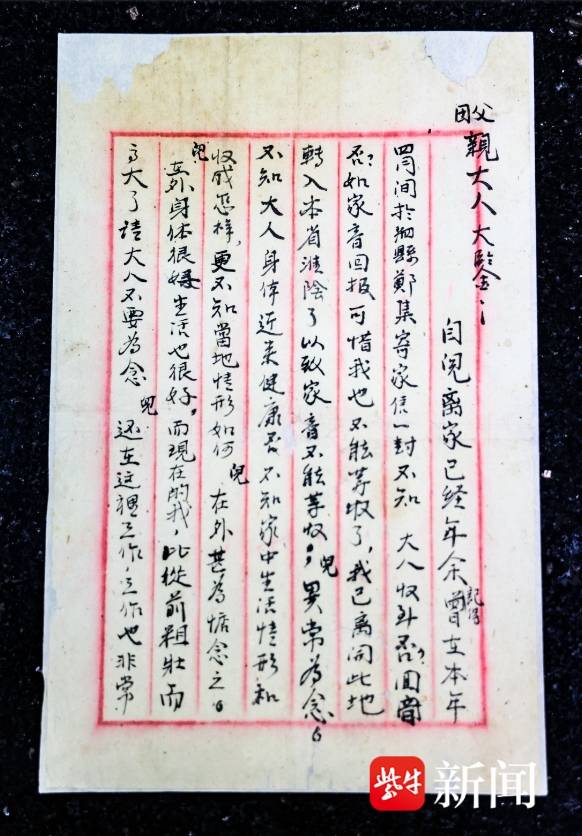 父母親大人大鑒：
自兒离家已经年余曾記得在本年
四月间於泗縣鄭集寄家信一封不知 大人收到否？回音
否？如家音回报可惜我也不能等收了，我已离開此地
轉入本省淮陰了以致家音不能等收；兒異常為念。
不知大人身体近来健康否 不知家中生活情形和
收成怎样，更不知當地情形如何 兒在外甚為惦念之。
兒在外身体很好生活也很好，而現在的我，比從前粗壮而
高大了請大人不要為念 兒还在这裡工作，工作也非常
紫牛新闻